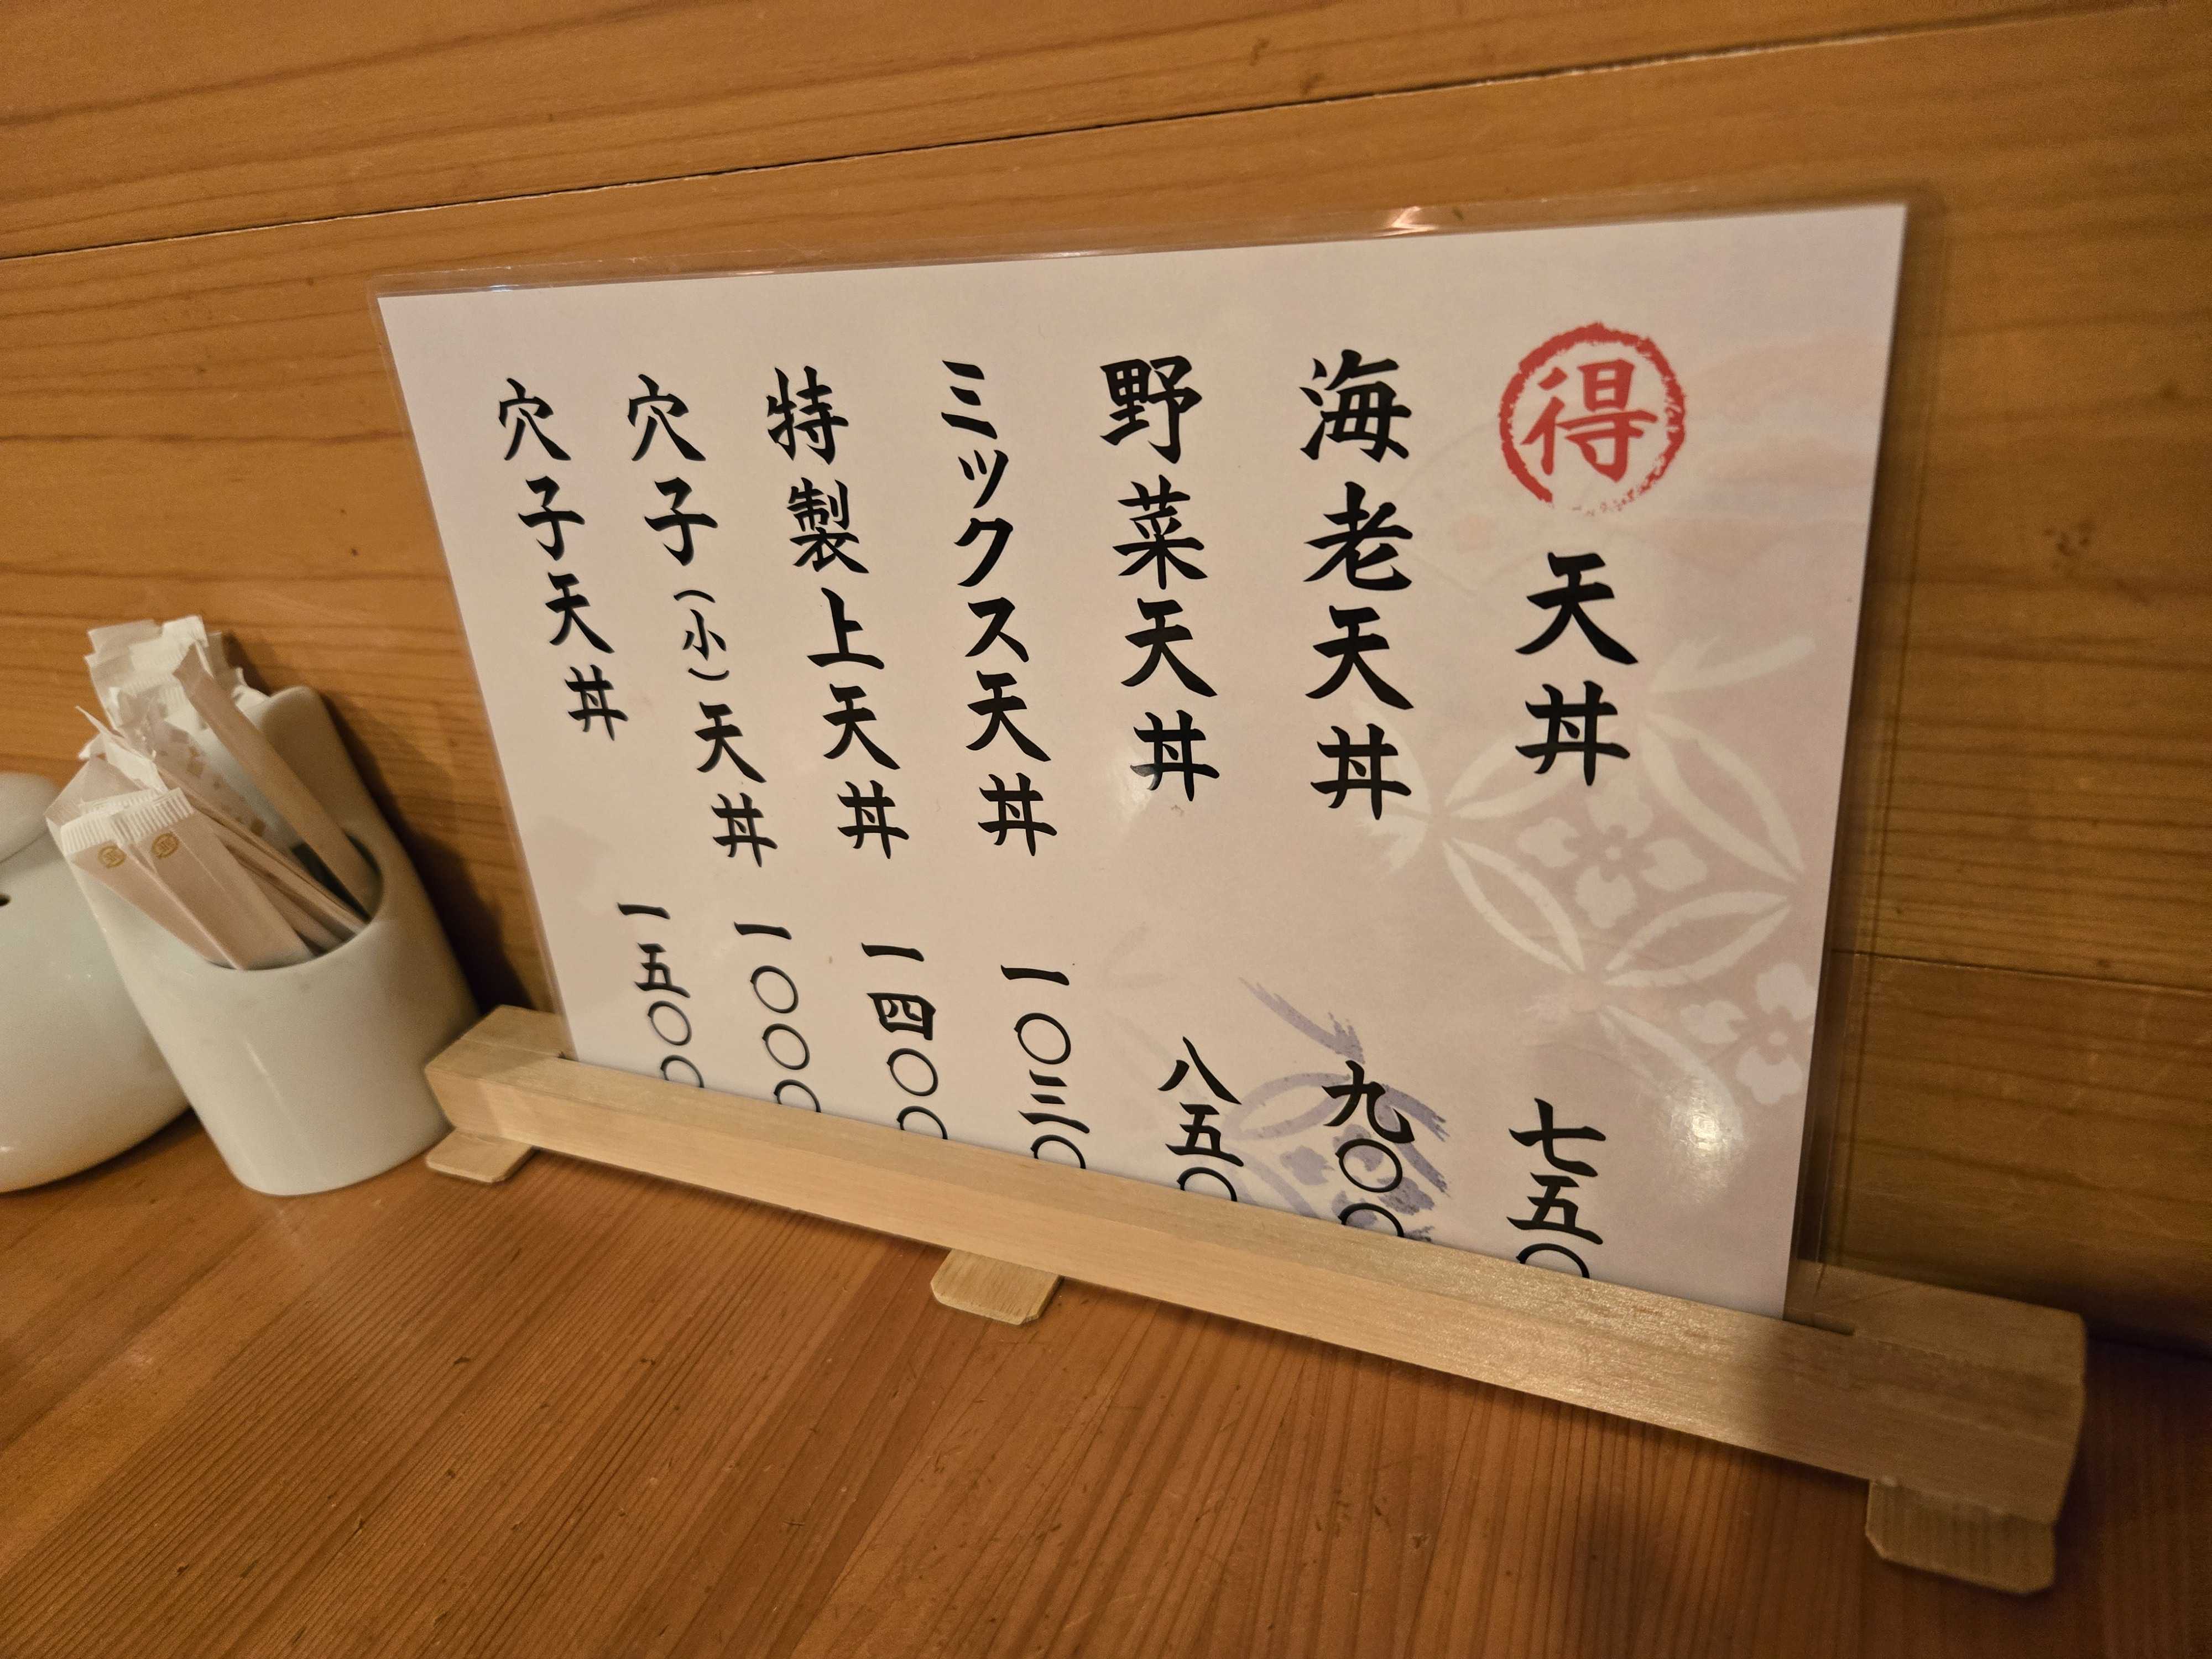 得 天丼 七五〇
海老天丼 九〇〇
野菜天丼 八五〇
ミックス天丼 一〇三〇
特製上天丼 一四〇〇
穴子(小)天丼 一〇〇〇
穴子天丼 一五〇〇